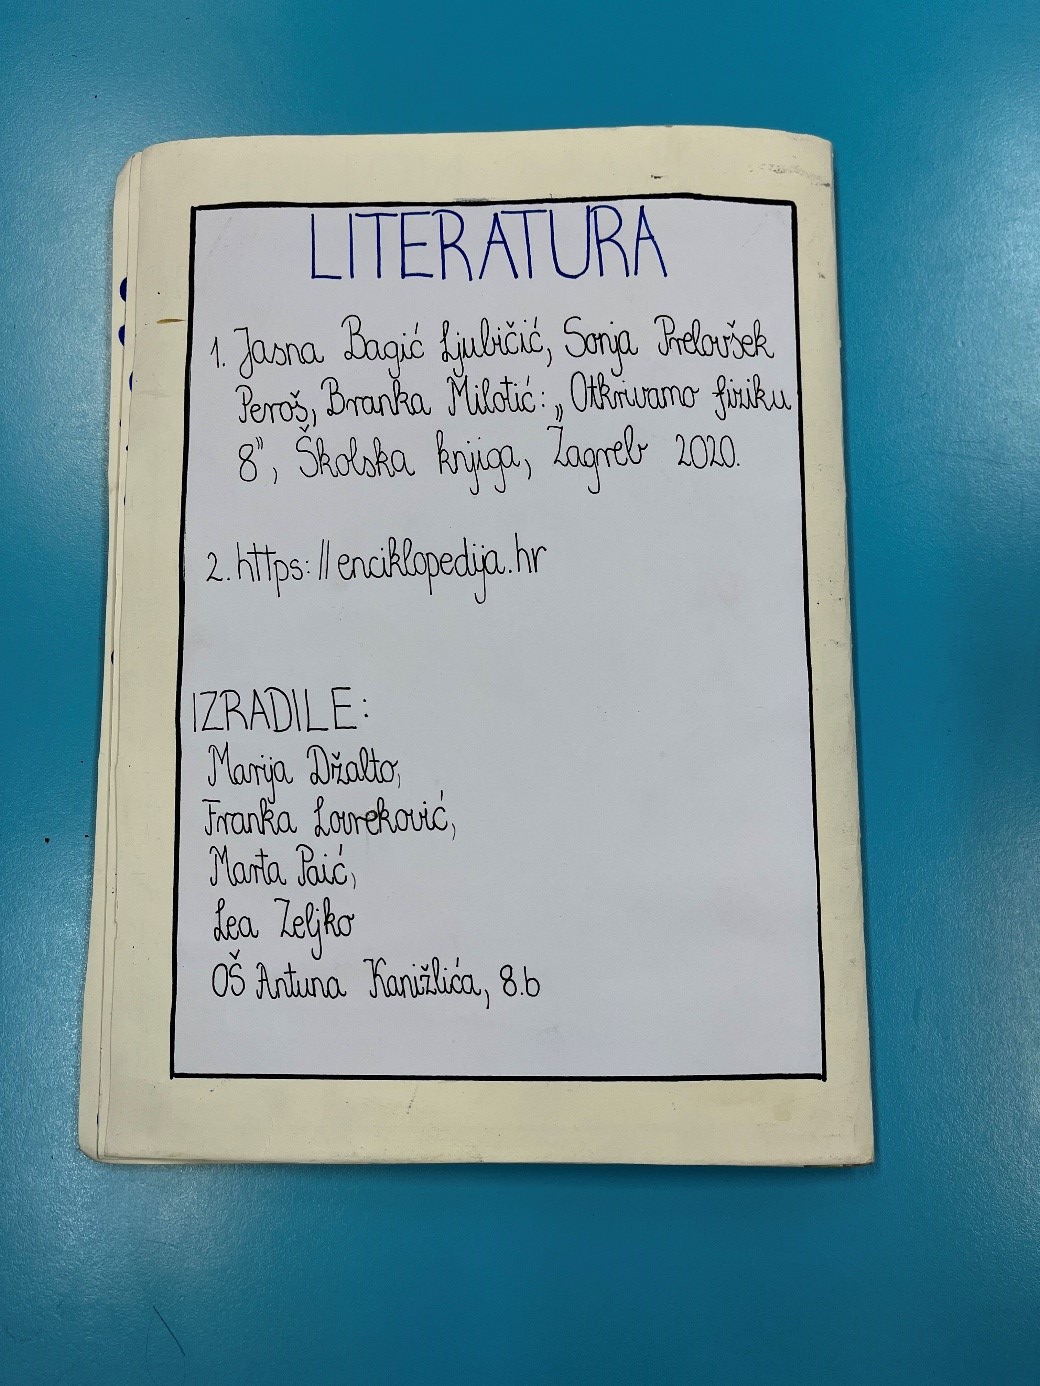 LITERATURA
1. Jasna Bagić Ljubičić, Sonja Prelovšek
Peroš, Branka Milotić: „Otkrivamo fiziku
8”, Školska knjiga, Zagreb 2020.
2. https://enciklopedija.hr
IZRADILE:
Marija Džalto,
Franka Lovreković,
Marta Paić,
Lea Zeljko
OŠ Antuna Kanižlića, 8.b